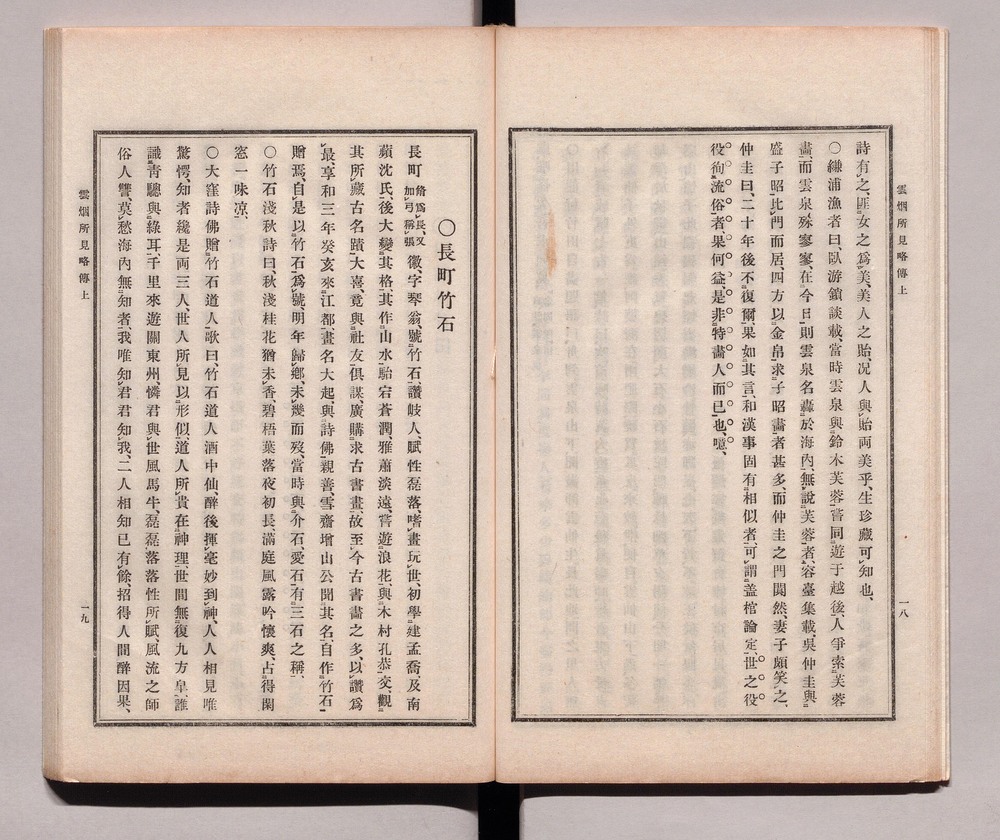 雲烟所見略傳上
詩有之、匪女之爲美、美人之貽、况人與貽両美乎、生珍藏可知也、
○縑浦漁者曰、臥游鎖談載、當時雲泉與鈴木芙蓉嘗同遊于越後、人爭索芙蓉
畵、而雲泉殊寥寥、在今日則雲泉名轟於海內、無說芙蓉者、容臺集載、吳仲圭與
盛子昭比門而居、四方以金帛求子昭畵者甚多、而仲圭之門闃然、妻子頗笑之、
仲圭曰、二十年後不復爾、果如其言、和漢事固有相似者、可謂盖棺論定、世之役
役徇流俗者、果何益、是非特畵人而已也、噫、
一八
雲烟所見略傳上
○長町竹石
長町脩爲長、又加弓稱張徽、字琴翁、號竹石、讃岐人、賦性磊落、嗜畵玩世、初學建孟喬、及南
蘋沈氏、後大變其格、其作山水、胎宕蒼潤、雅蕭淡遠、嘗遊浪花、與木村孔恭交、觀
其所藏古名蹟、大喜、竟與社友俱謀、廣購求古書畵、故至今古書畵之多、以讃爲
最、享和三年癸亥來江都、畵名大起、與詩佛親善、雪齋增山公聞其名、自作竹石
贈焉、自是以竹石爲號、明年歸鄕、未幾而歿、當時與介石、愛石、有三石之稱、
○竹石淺秋詩曰、秋淺桂花猶未香、碧梧葉落夜初長、滿庭風露吟懷爽、占得閑
窓一味凉、
○大窪詩佛贈竹石道人歌曰、竹石道人酒中仙、醉後揮毫妙到神、人人相見唯
驚愕、知者纔是両三人、世人所見以形似、道人所貴在神理、世間無復九方皐、誰
識靑驄與綠耳、千里來遊關東州、憐君與世風馬牛、磊磊落落性所賦、風流之師
俗人讐、莫愁海內無知者、我唯知君君知我、二人相知已有餘、招得人間醉因果、
一九